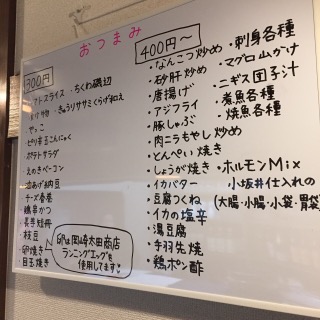 おつまみ
300円
・トマトスライス ・ちくわ磯辺
・漬け物 ・きゅうりササミくらげ和え
・やっこ
・ピリ辛玉こんにゃく
・ポテトサラダ
・えのきベーコン
・油あげ納豆
・チーズ春巻
・鶏串かつ
・長芋短冊
・枝豆
・卵焼き
・目玉焼き
卵は岡崎太田商店
ランニングエッグを
使用してます
400円〜
・なんこつ炒め
・砂肝炒め
・唐揚げ
・アジフライ
・豚しゃぶ
・肉ニラもやし炒め
・とんぺい焼き
・しょうが焼き
・イカバター
・豆腐つくね
・イカの塩辛
・湯豆腐
・手羽先焼
・鶏ポン酢
・刺身各種
・マグロ山かけ
・ニギス団子汁
・煮魚各種
・焼魚各種
・ホルモンMix
小坂井仕入れの
(大腸・小腸・小袋・胃袋)